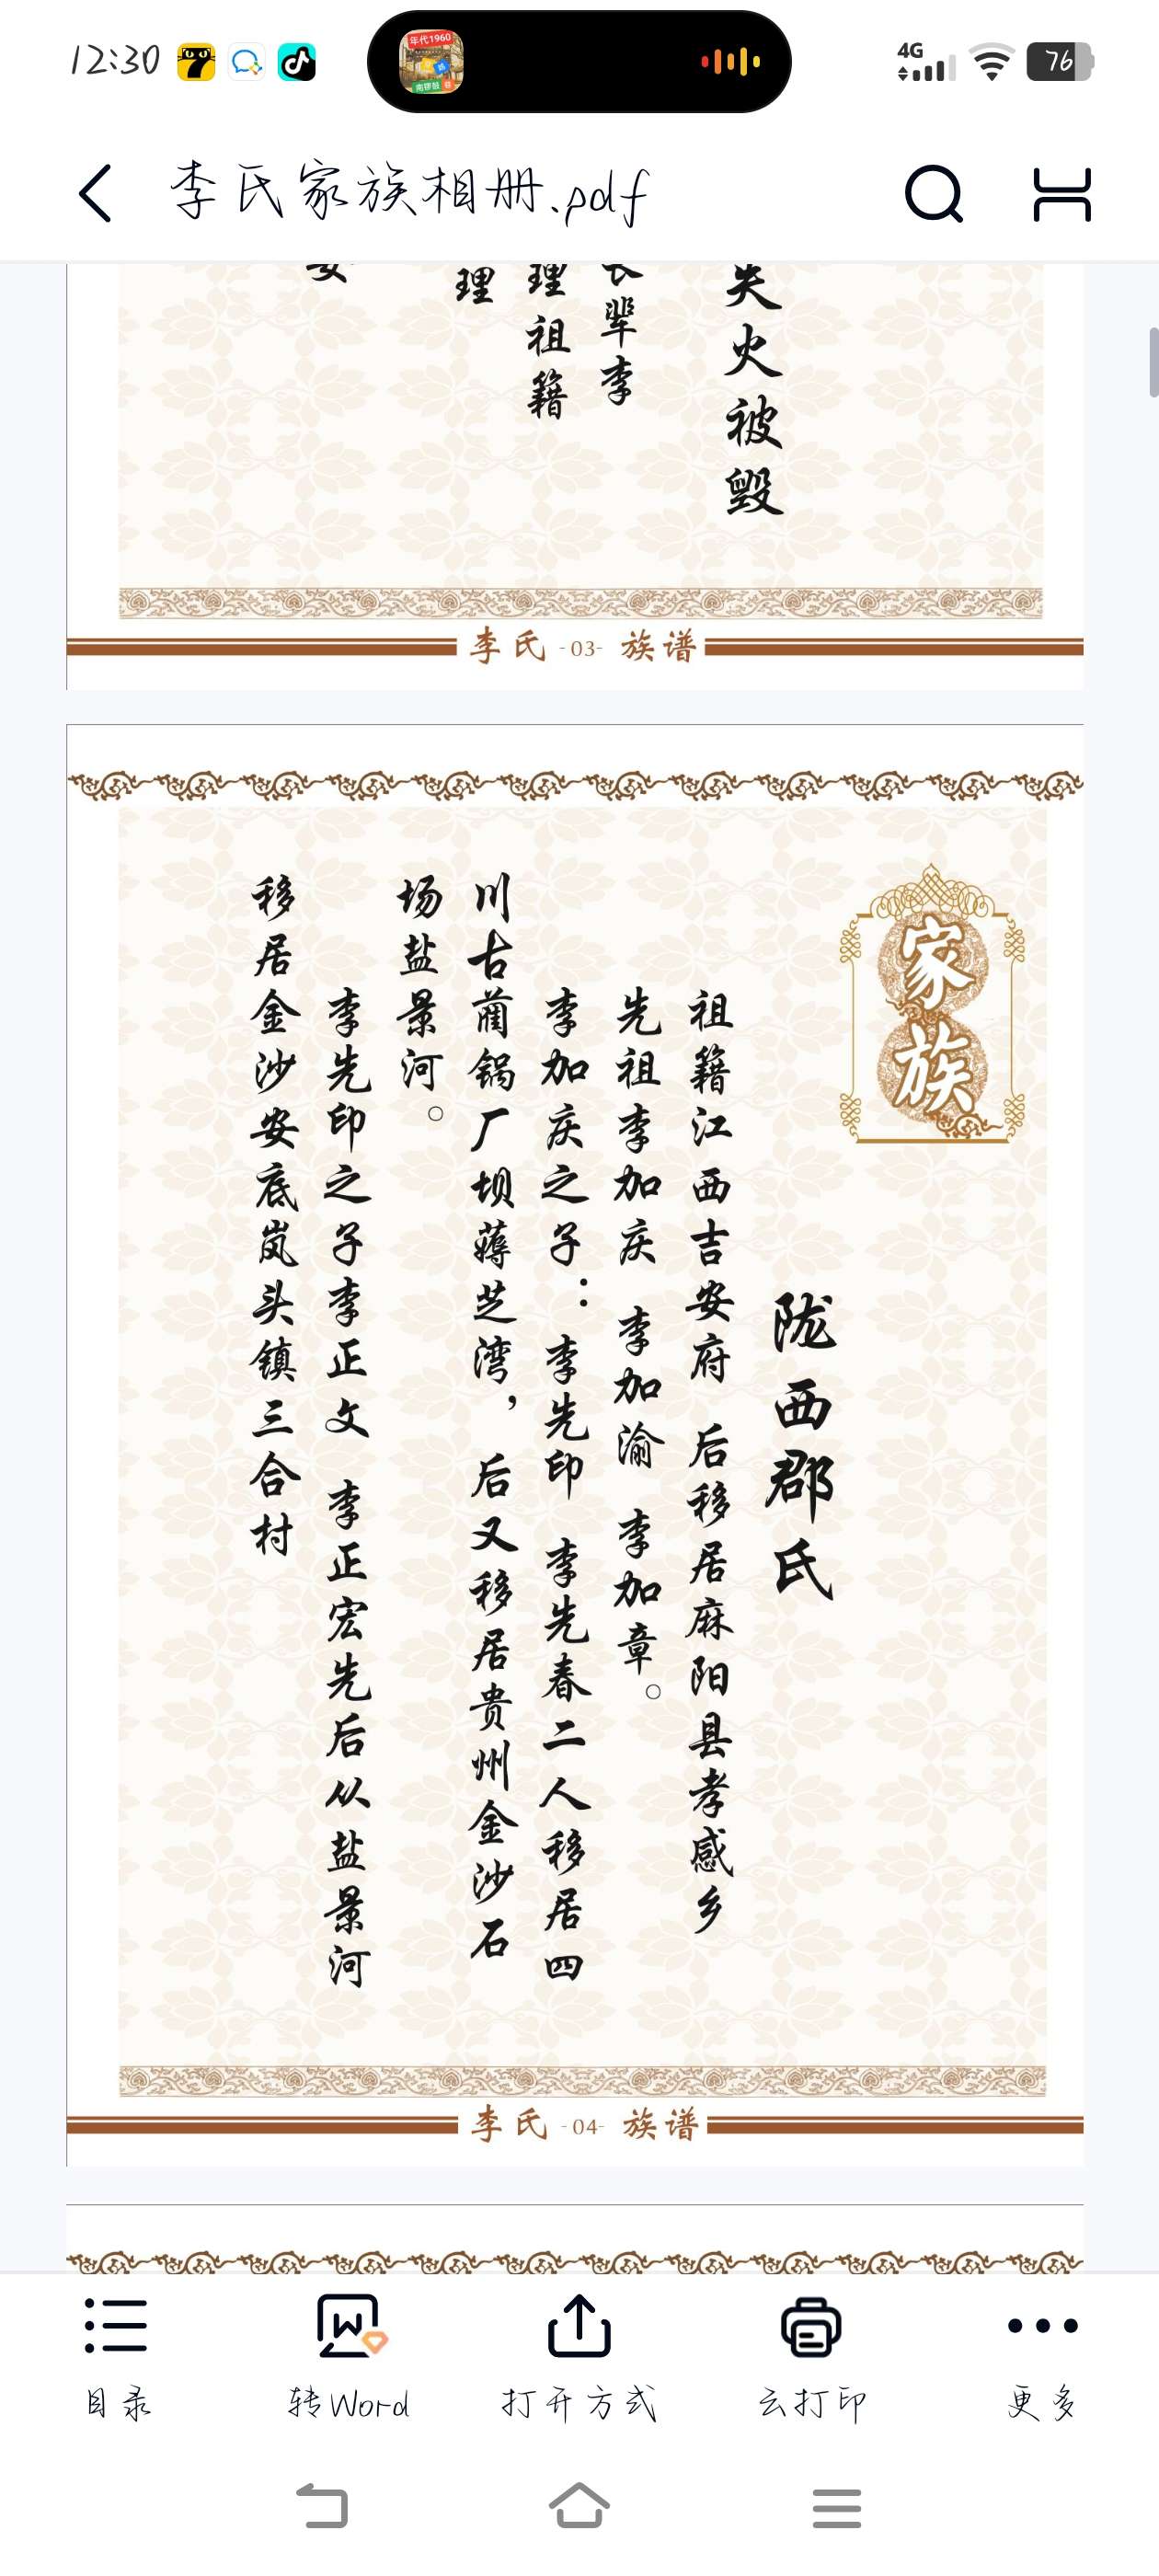 12:30
年代1960
4G
76
李氏家族相册.pdf
失火被毁
长辈李
理祖籍
理
安
李氏 -03- 族谱
家族
陇西郡氏
祖籍江西吉安府 后移居麻阳县孝感乡
先祖李加庆 李加渝 李加章。
李加庆之子：李先印 李先春二人移居四
川古蔺锅厂坝薅芝湾，后又移居贵州金沙石
场盐景河。
李先印之子李正文 李正宏先后从盐景河
移居金沙安底岚头镇三合村
李氏 -04- 族谱
目录
转Word
打开方式
云打印
更多